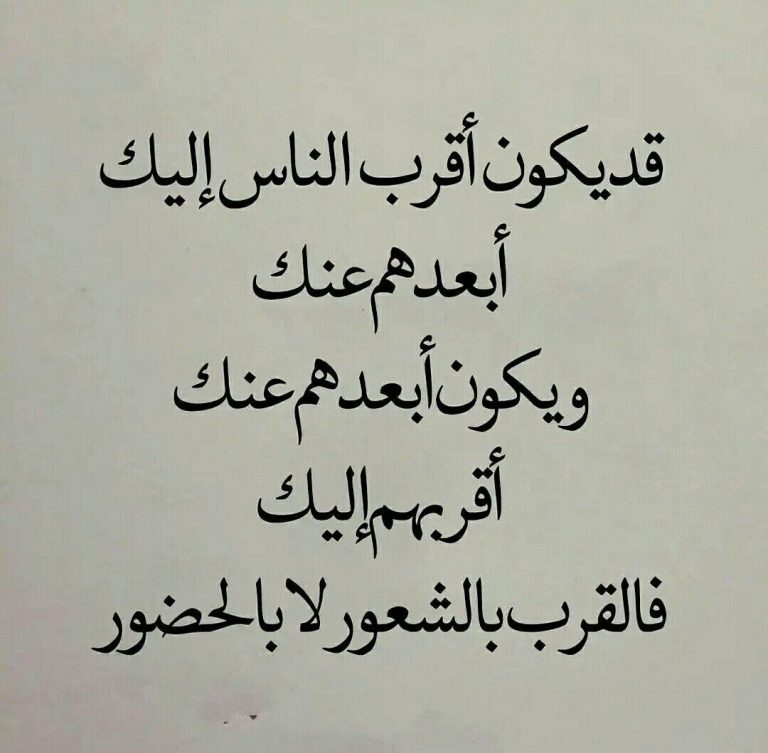 قد يكون أقرب الناس إليك
أبعدهم عنك
ويكون أبعدهم عنك
أقربهم إليك
فالقرب بالشعور لا بالحضور